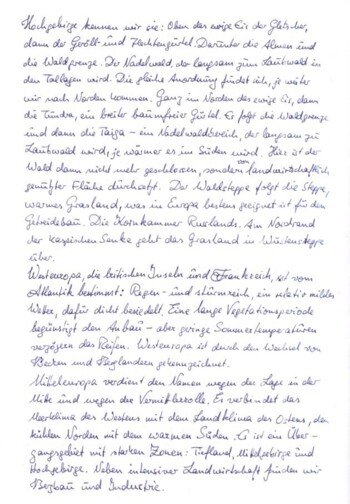 Hochgebirge kennen wir sie: Oben das ewige Eis der Gletscher,
dann der Geröll- und Flechtengürtel. Darunter die Almen und
die Waldgrenze. Der Nadelwald, der langsam zum Laubwald in
den Tallagen wird. Die gleiche Anordnung findet sich, je weiter
wir nach Norden kommen. Ganz im Norden das ewige Eis, dann
die Tundra, ein breiter baumfreier Gürtel. Es folgt die Waldgrenze
und dann die Taiga – ein Nadelwaldbereich, der langsam zu
Laubwald wird, je wärmer es im Süden wird. Hier ist der
Wald dann nicht mehr geschlossen, sondern von landwirtschaftlich
genutzter Fläche durchsetzt. Der Waldsteppe folgt die Steppe,
warmes Grasland, was in Europa bestens geeignet ist für den
Getreidebau. Die Kornkammer Russlands. Am Nordrand
der kaspischen Senke geht das Grasland in Wüstensteppe
über.
Westeuropa, die britischen Inseln und Frankreich, ist vom
Atlantik bestimmt: Regen- und sturmreich, ein relativ mildes
Wetter, dafür dicht besiedelt. Eine lange Vegetationsperiode
begünstigt den Anbau – aber geringe Sommertemperaturen
verzögern das Reifen. Westeuropa ist durch den Wechsel von
Becken und Bergländern gekennzeichnet.
Mitteleuropa verdient den Namen wegen der Lage in der
Mitte und wegen der Vermittlerrolle. Es verbindet das
Meerklima des Westens mit dem Landklima des Ostens, den
kühlen Norden mit dem warmen Süden. Es ist ein Über-
gangsgebiet mit starken Zonen: Tiefland, Mittelgebirge und
Hochgebirge. Neben intensiver Landwirtschaft finden wir
Bergbau und Industrie.